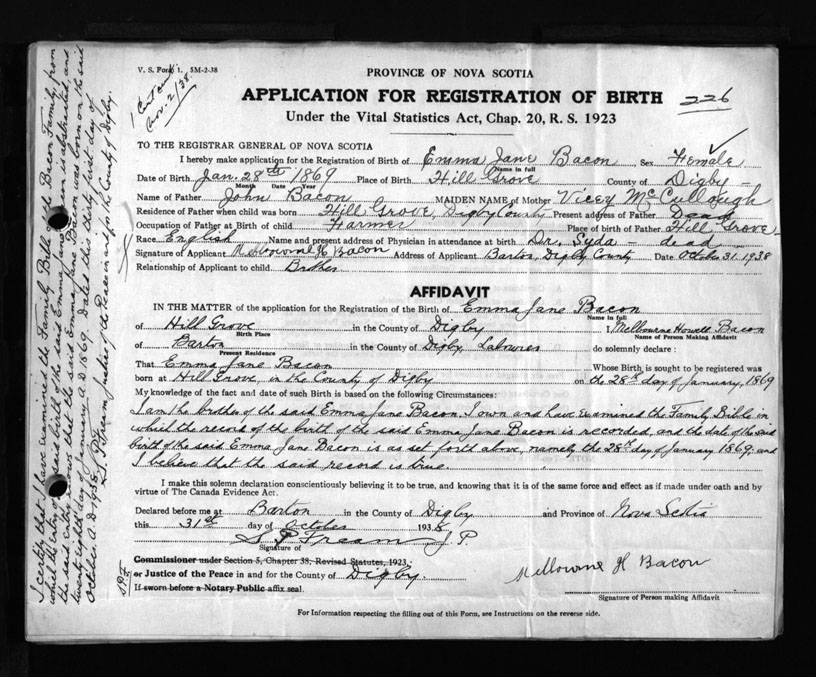 V. S. Form 1. 5M-2-38
PROVINCE OF NOVA SCOTIA
APPLICATION FOR REGISTRATION OF BIRTH
226
Under the Vital Statistics Act, Chap. 20, R. S. 1923
1 Cert
Nov. 2/38
TO THE REGISTRAR GENERAL OF NOVA SCOTIA
I hereby make application for the Registration of Birth of Emma Jane Bacon Sex Female
Name in full
Date of Birth Jan. 28th 1869 Place of Birth Hill Grove County of Digby
Month Date Year
Name of Father John Bacon MAIDEN NAME of Mother Vicey McCullough
Residence of Father when child was born Hill Grove, Digby County Present address of Father Dead
Occupation of Father at Birth of child Farmer Place of birth of Father Hill Grove
Race English Name and present address of Physician in attendance at birth Dr. Syda - dead
Signature of Applicant Melbourne H Bacon Address of Applicant Barton, Digby County Date October 31. 1938
Relationship of Applicant to child Brother
AFFIDAVIT
IN THE MATTER of the application for the Registration of the Birth of Emma Jane Bacon
Name in full
of Hill Grove in the County of Digby I, Melbourne Howell Bacon
Birth Place Name of Person Making Affidavit
of Barton in the County of Digby Labourer do solemnly declare :
Present Residence
That Emma Jane Bacon Whose Birth is sought to be registered was
born at Hill Grove, in the County of Digby on the 28th day of January, 1869
My knowledge of the fact and date of such Birth is based on the following Circumstances:
I am the brother of the said Emma Jane Bacon. I own and have examined the Family Bible in
which the record of the birth of the said Emma Jane Bacon is recorded, and the date of the said
birth of the said Emma Jane Bacon is as set forth above, namely the 28th day of January 1869; and
I believe that the said record is true.
I make this solemn declaration conscientiously believing it to be true, and knowing that it is of the same force and effect as if made under oath and by
virtue of The Canada Evidence Act.
Declared before me at Barton in the County of Digby and Province of Nova Scotia
this 31st day of October 1938
S. P. Fream J. P.
Signature of
Commissioner under Section 5, Chapter 38, Revised Statutes, 1923,
or Justice of the Peace in and for the County of Digby.
If sworn before a Notary Public affix seal.
Melbourne H Bacon
Signature of Person making Affidavit
For Information respecting the filling out of this Form, see Instructions on the reverse side.
I certify that I have examined the Family Bible of the Bacon Family, from
which the entry of the said birth of the said Emma Jane Bacon is abstracted, and
the said entry shows that the said Emma Jane Bacon was born on the said
twenty eighth day of January A.D. 1869. Dated this thirty first day of
October A.D. 1938.
S. P. Fream Justice of the Peace in and for the County of Digby.